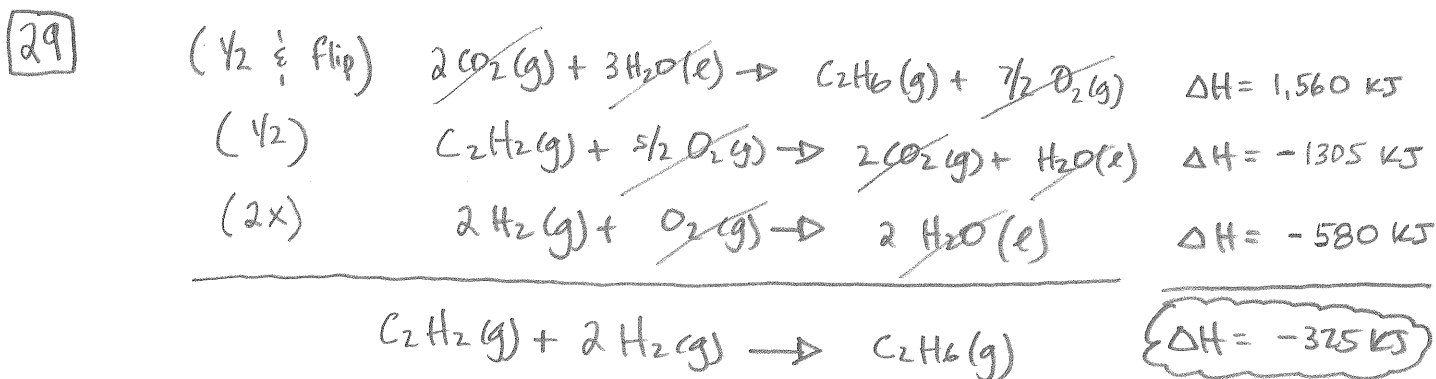 29
(1/2 & flip) 2 CO2 (g) + 3 H2O (l) → C2H6 (g) + 7/2 O2 (g) ΔH = 1,560 KJ
(1/2) C2H2 (g) + 5/2 O2 (g) → 2 CO2 (g) + H2O (l) ΔH = -1305 KJ
(2x) 2 H2 (g) + O2 (g) → 2 H2O (l) ΔH = -580 KJ
C2H2 (g) + 2 H2 (g) → C2H6 (g) ΔH = -325 KJ